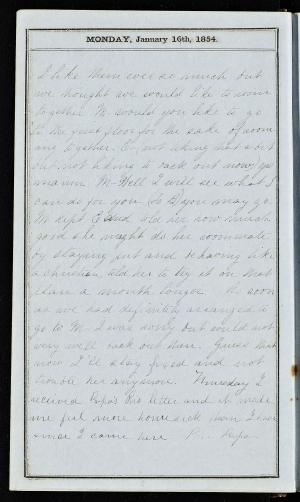 MONDAY, January 16th, 1854.
I like them ever so much but
we thought we would like to room
together. M. would you like to go
to the first floor for the sake of room
ing together. E, not liking that sort
but not liking to back out now, yes
mamm. M-Well I will see what I
can do for you (to B) you may go.
M kept E and told her how much
good she might do her roommate
by staying put and behaving like
a christian, told her to try it on that
plan a month longer. As soon
as we had definitely arranged to
go to M. I was sorry but could not
very well back out then. Guess that
now I'll stay fixed and not
trouble her anymore. Thursday I
received Papa's letter and it made
me feel more homesick than I ever
since I come here Papa